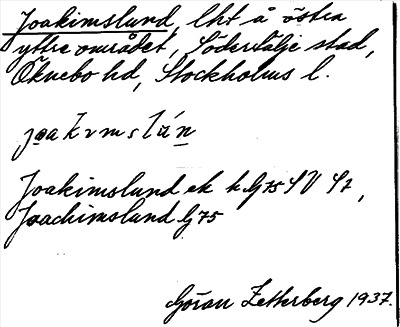 Joakimslund, lht å östra
yttre området, Södertälje stad,
Öknebo hd, Stockholms l.
Joakimslund ek k. G75 SV S7,
Joachimslund G75
Göran Zetterberg 1937.